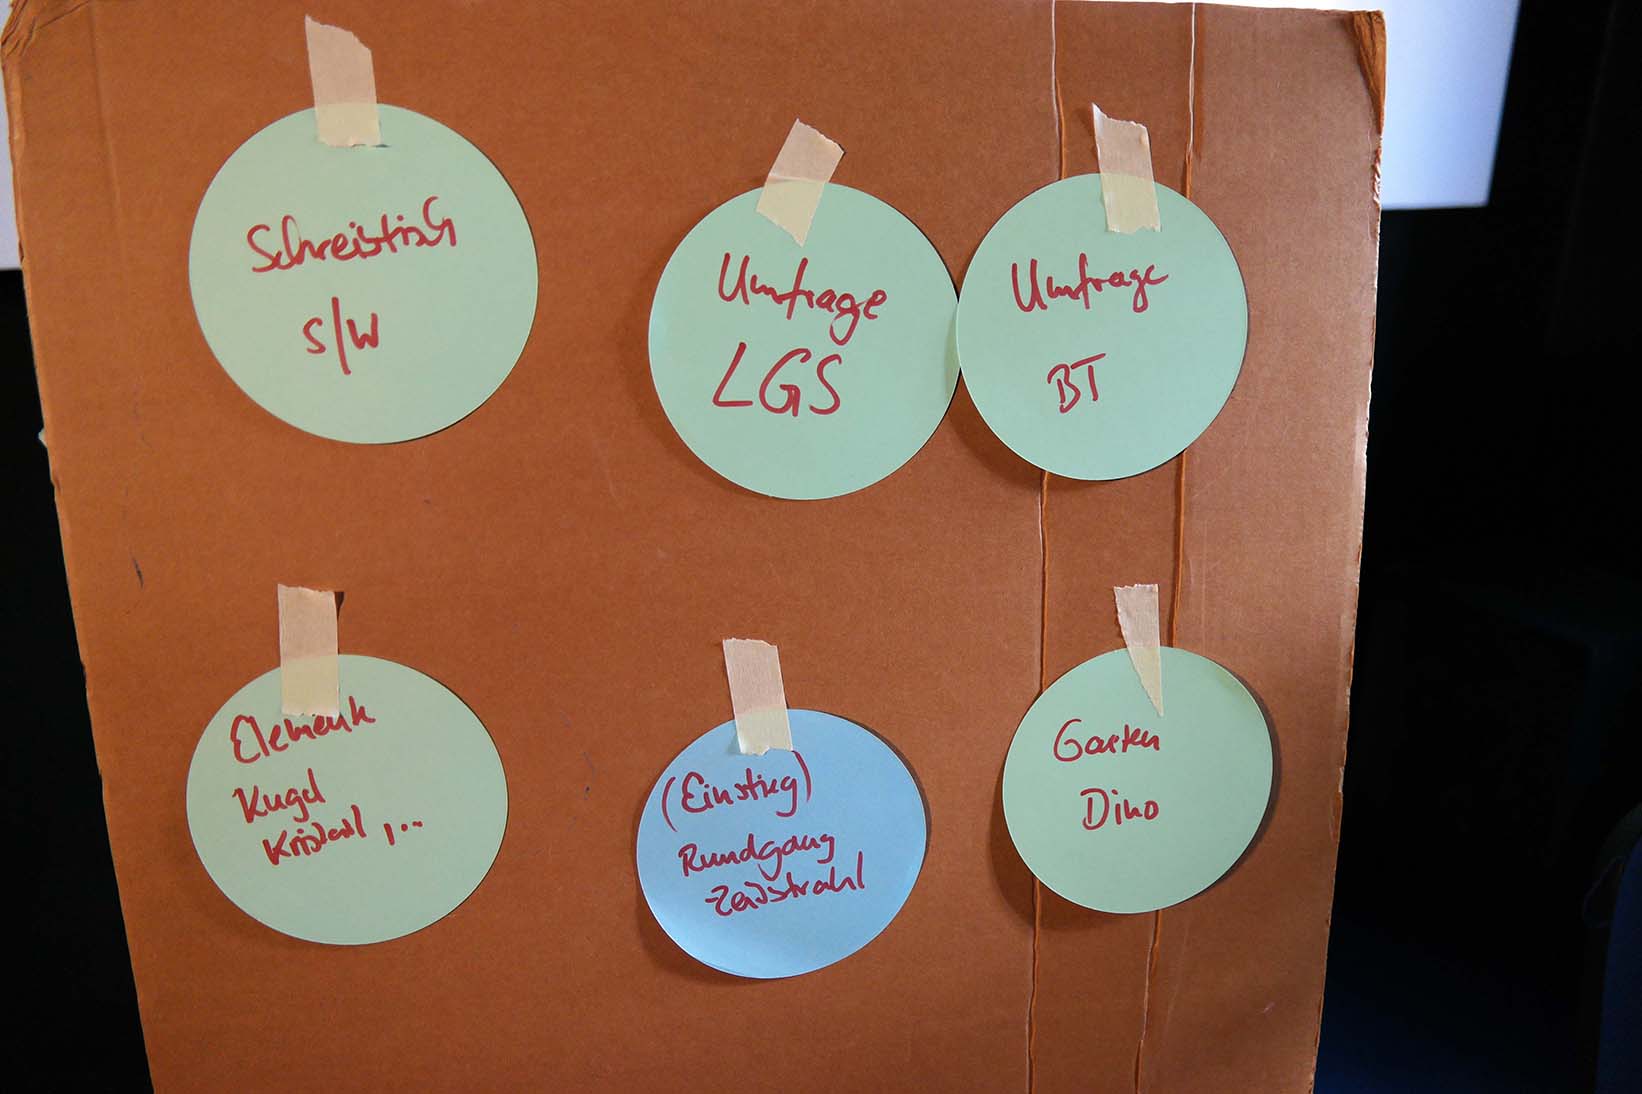 Schreibtisch
S/W
Umfrage
LGS
Umfrage
BT
Elemente
Kugel
Kristall, ...
(Einstieg)
Rundgang
Zeitstrahl
Garten
Dino